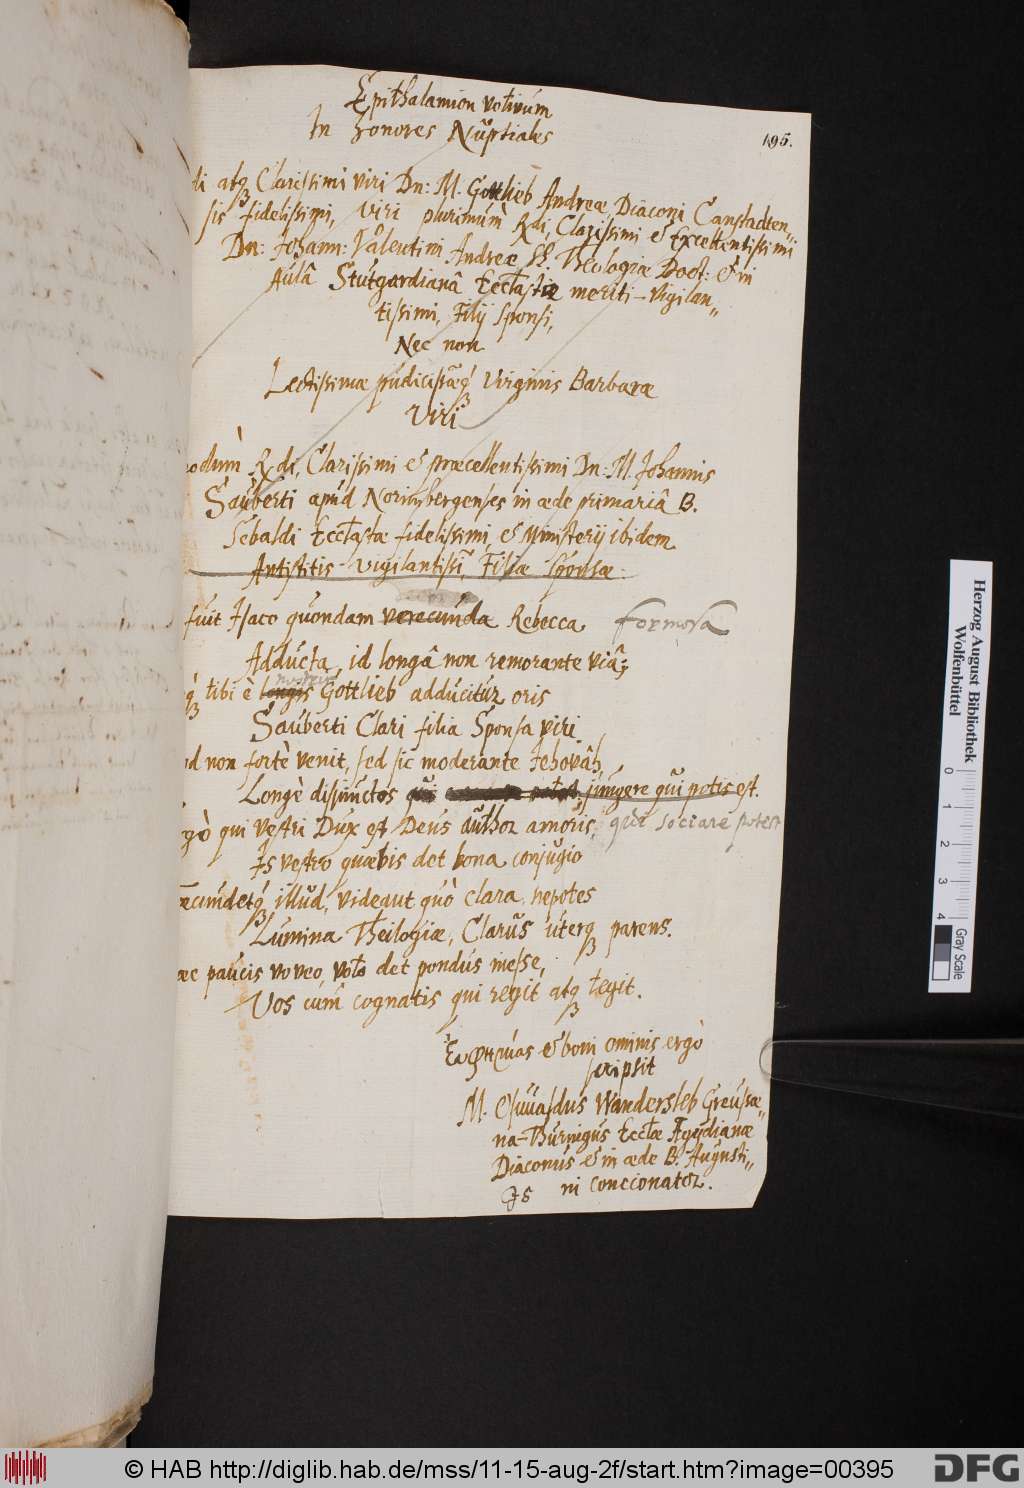 Epithalamion votivum
In honores Nuptiales
195.
di atq Clarissimi viri Dn: M. Gottlieb Andreæ Diaconi Canstadien„
sis fidelissimi, Viri plurimùm Rdi, Clarissimi & Excellentissimi
Dn: Johann: Valentini Andreæ SS. Theologiæ Doct: & in
Aulâ Stutgardianâ Ecclastæ meriti-vigilan„
tissimi, Filij Sponsi,
Nec non
Lectissimæ pudicissæq Virginis Barbaræ
Viri
odùm Rdi, Clarissimi & præcellentissimi Dn: M. Johannis
Sauberti apud Norimbergenses in æde primariâ B.
Sebaldi Ecclastæ fidelissimi, & Ministerij ibidem
Antistitis vigilantissi, Filiæ Sponsæ.
fuit Isaco quondam verecunda Rebecca formosa
Adducta, id longâ non remorante viâ;
q tibi è longis Gottlieb adducitur oris
Sauberti Clari filia Sponsa viri.
d non fortè venit, sed sic moderante Jehovâh,
Longè disjunctos qui jungere qui potis est.
gò qui vestri Dux est Deus author amoris, qui sociare potest
Is vestro quævis det bona conjugio
œcundetq illud, videant quò clara nepotes
Lumina Theilogiæ, Clarus uterq parens.
æc paucis voveo, voto det pondus inesse,
Vos cum cognatis qui regit atq tegit.
& boni ominis ergò
scripsit
M. Osuualdus Wandersleb Greussæ„
na-Thuringus Eccłæ Ægydianæ
Diaconus & in æde B. Augusti„
ni concionator.
Is
Herzog August Bibliothek
Wolfenbüttel
0 1 2 3 4
Gray Scale
© HAB http://diglib.hab.de/mss/11-15-aug-2f/start.htm?image=00395
DFG